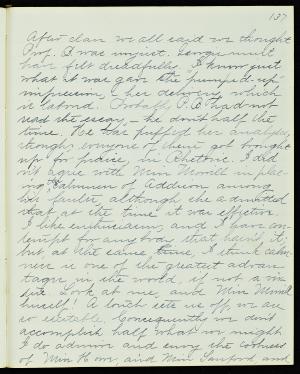 137
After class we all said we thought
Prof. B was unjust. Georgia must
have felt dreadfully. I know just
what it was gave the "pumped-up"
impression, her delivery, which
is labored. Probably, P. B had not
read the essay, — he don't half the
time. He has puffed her analyses,
though; everyone of them got brought
up for praise, in Rhetoric. I did
not agree with Miss Morrill in plac-
ing calmness of Addison, among
his faults, although she admitted
that, at the time it was effective.
I like enthusiasm, and I have con-
tempt for anybody that hasn't it;
but, at the same time, I think calm-
ness is one of the greatest advan-
tages in the world, if not a vir-
tue. Look at me, and Miss Morrill
herself! A touch sets us off, we are
so excitable. Consequently we don't
accomplish half what we might
I do admire and envy the coolness
of Miss Howe, and Miss Sanford and